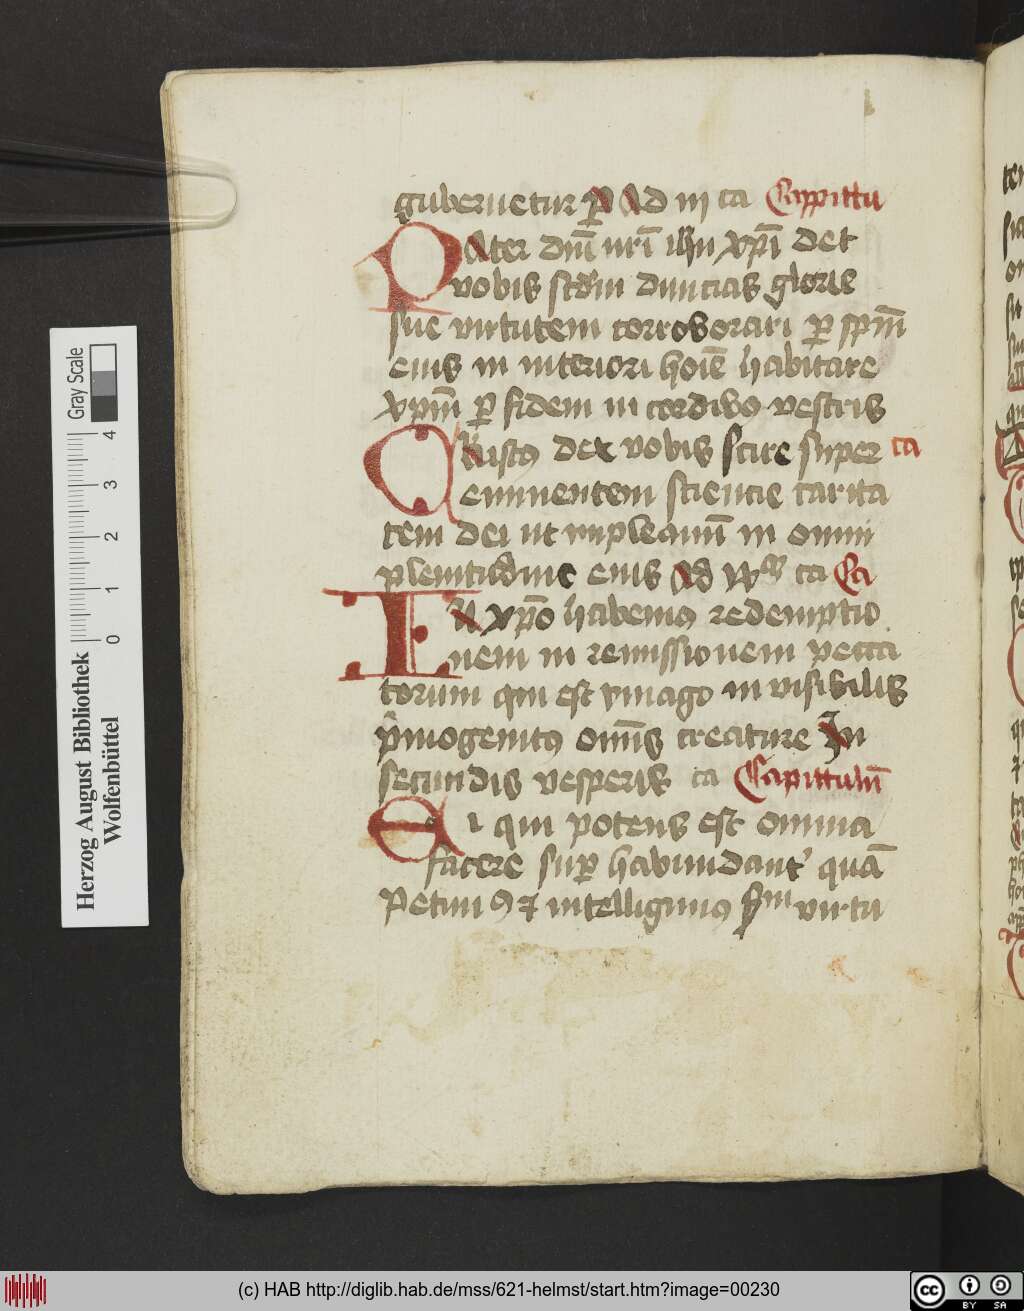 gubernetur p̄ Ad iij ca Cappittu
PAter dnī nrī ihu xp̄i det
vobis scdm diuicias glorie
sue virtutem corroborari p̄ spm̄
eius in interiori hoīe habitare
xpm̄ p̄ fidem in cordibꝰ vestris
Christꝰ det vobis scire super ca
eminentem sciencie carita
tem dei ut impleamī in omni
plenitudine eius Ad ca Ca
IN xp̄o habemꝰ redemptio
nem in remissionem pecca
torum qui est ymago inuisibilis
pͥmogenitꝰ omīs creature In
secundis vesperis ca Capittulū
Ei qui potens est omnia
facere sup̄ habundant᾽ quā
Petimꝰ ⁊ intelligimꝰ virtu
Herzog August Bibliothek
Wolfenbüttel
0 1 2 3 4
Gray Scale
(c) HAB http://diglib.hab.de/mss/621-helmst/start.htm?image=00230
cc BY SA